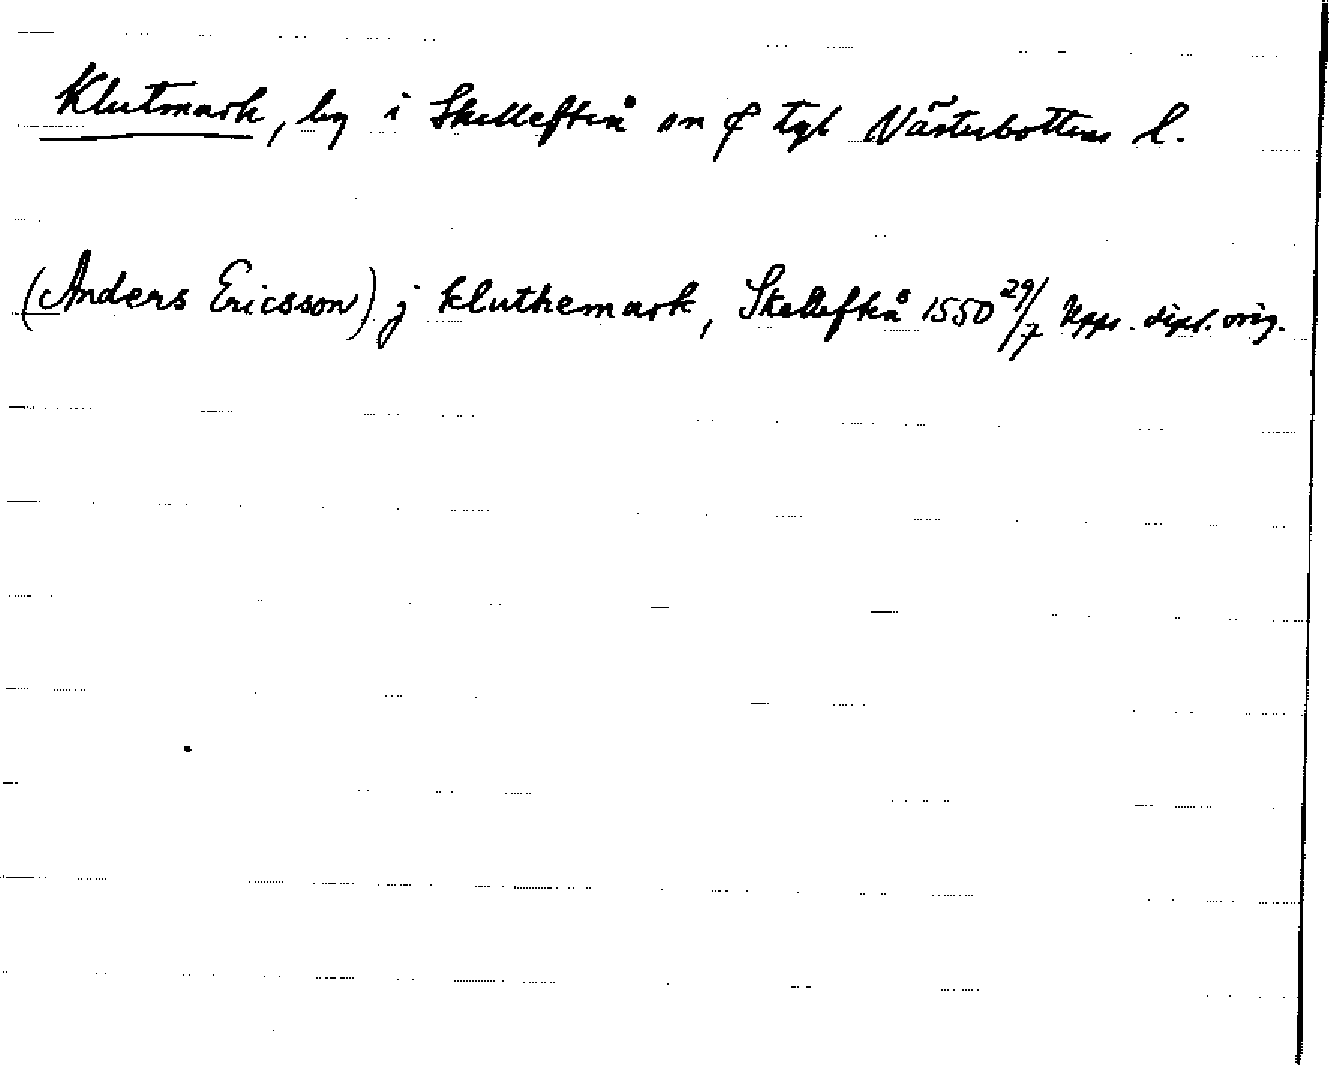 Klutmark, by i Skellefteå sn ₵ tgl Västerbottens l.
(Anders Ericsson) j kluthemark, Skellefteå 1550 29/7 Upps. dipl. orig.